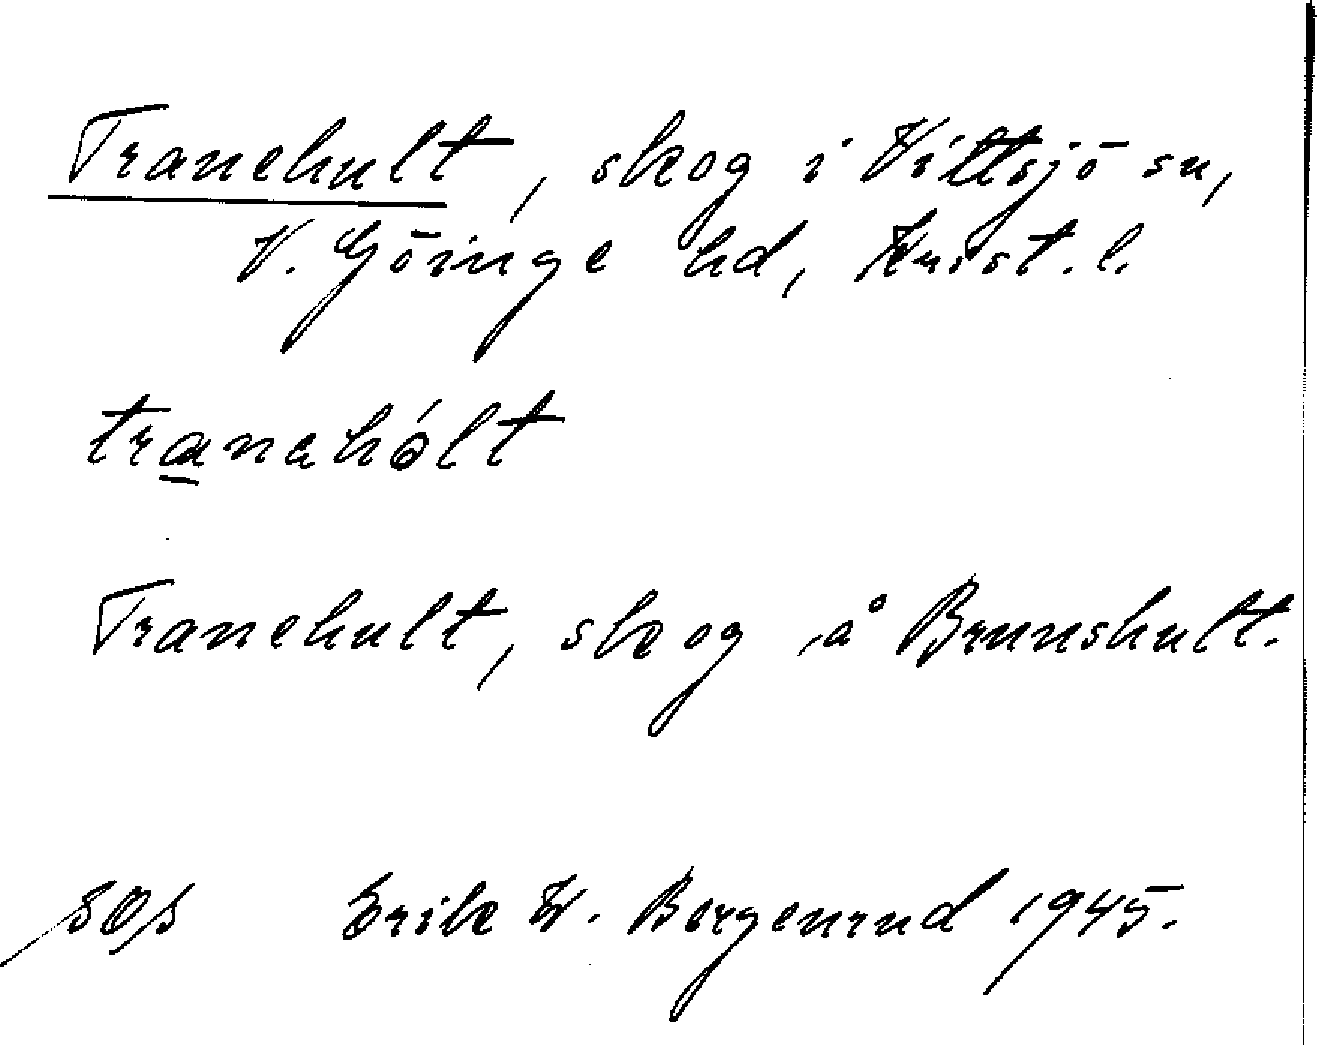 Tranehult, skog i Vittsjö sn,
V. Göinge hd, Krist. l.
tranahólt
Tranehult, skog å Brunshult.
SOS Erik W. Bergenrud 1945.